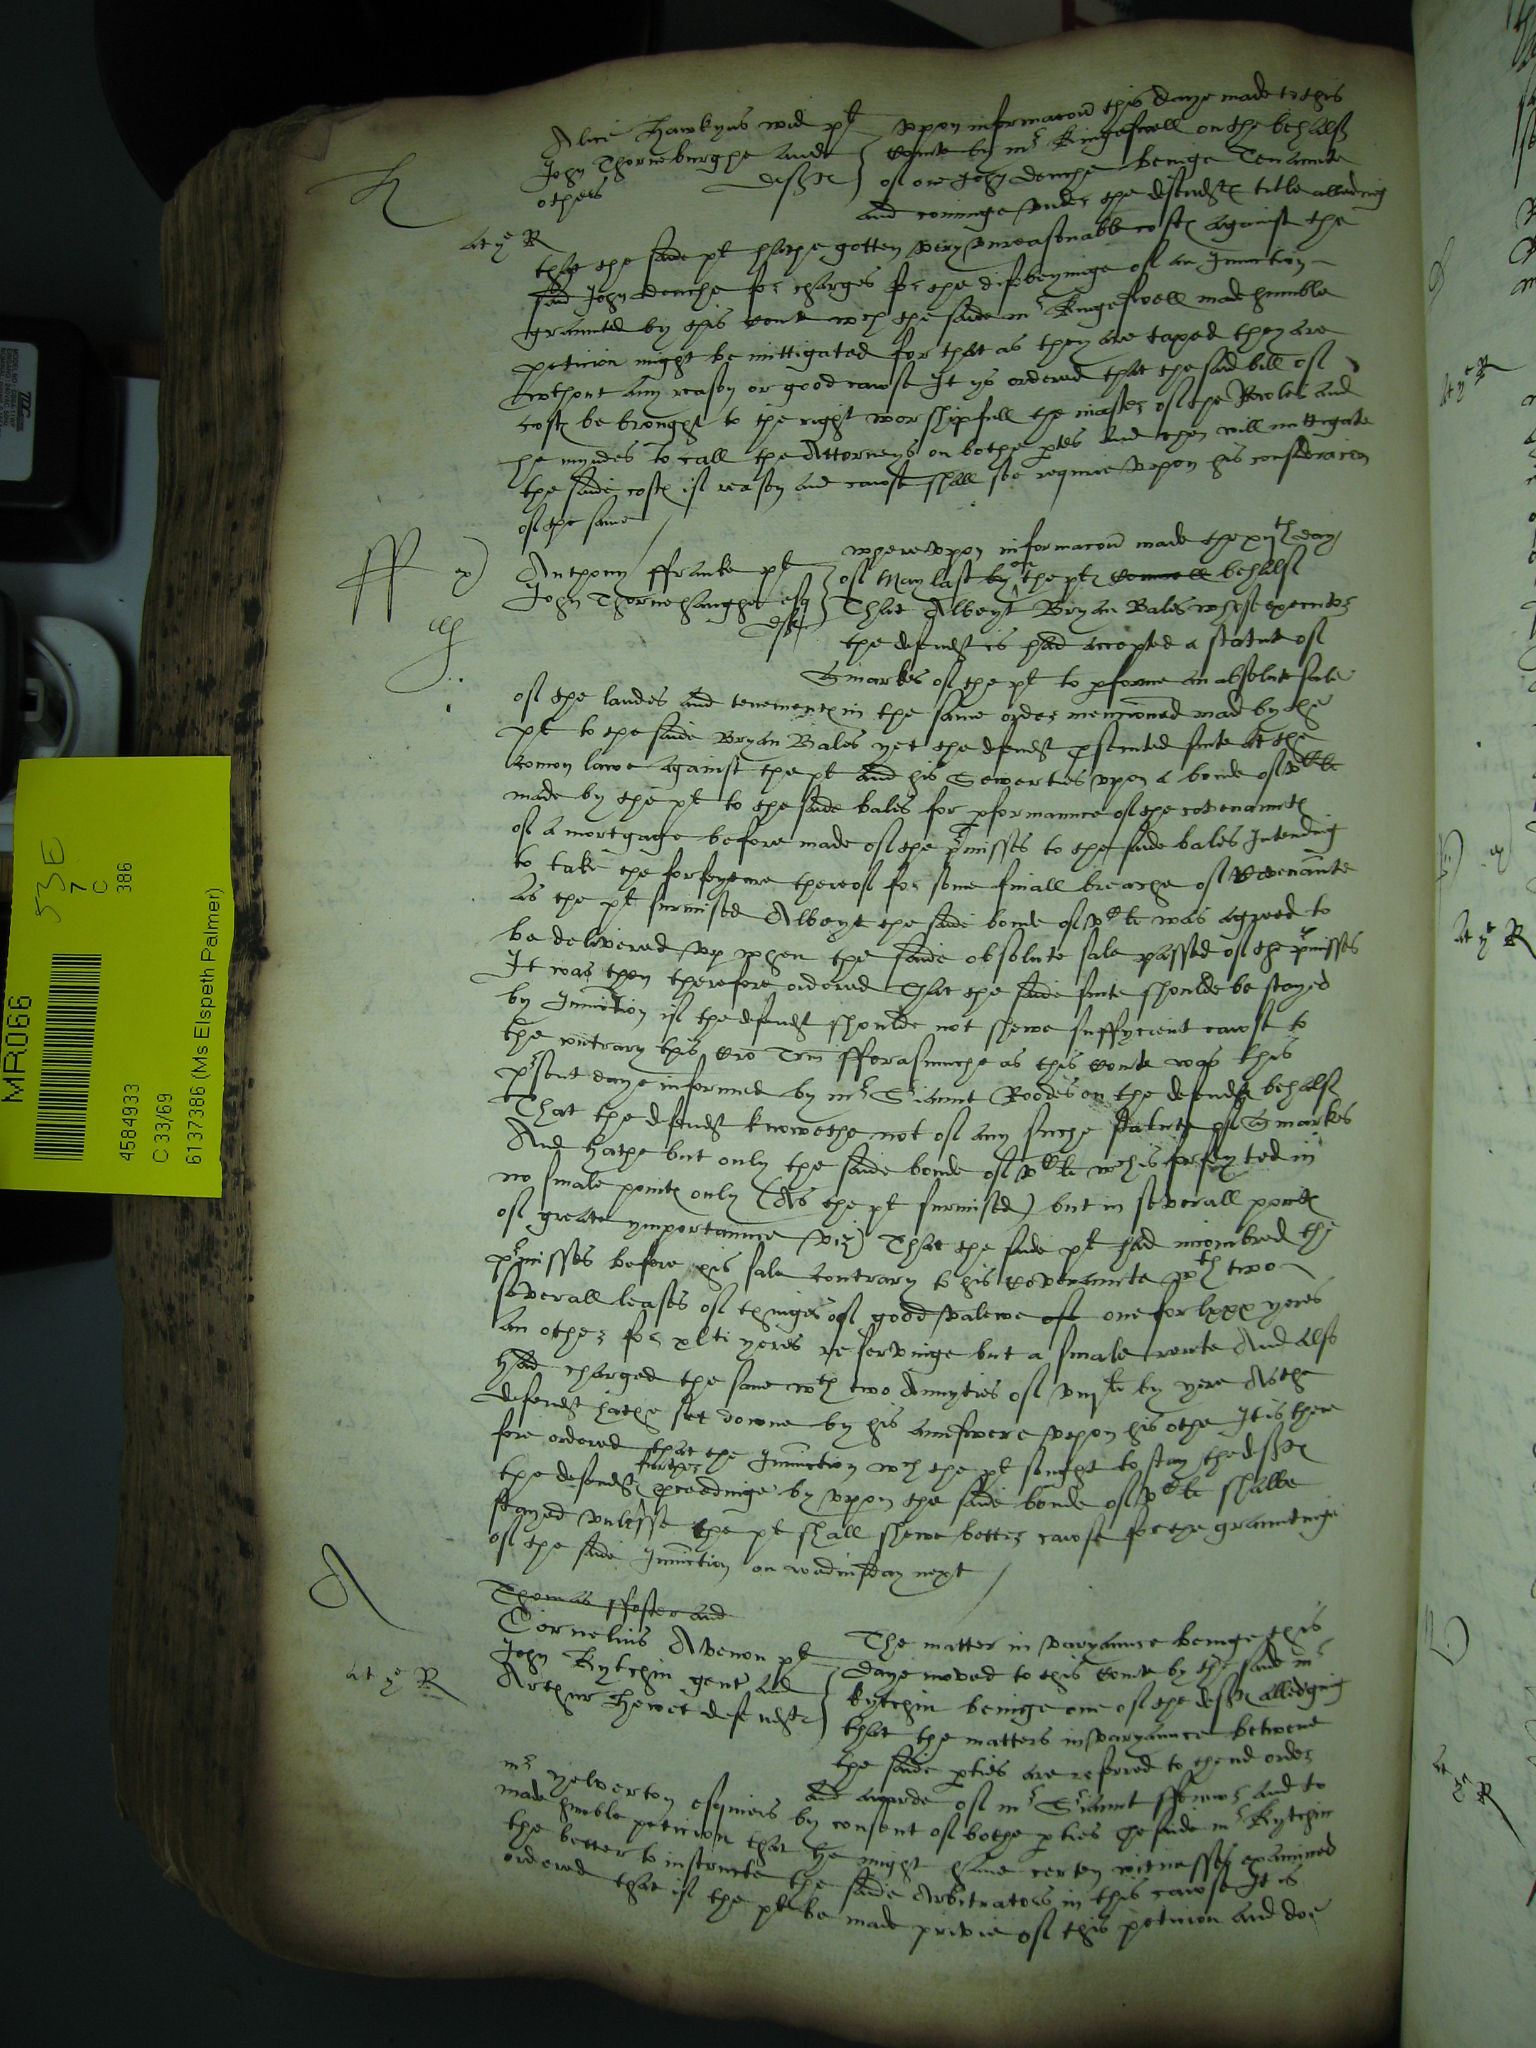 H
Alice Hawkyns wid pl
John Thorneburghe and
others deffts
at ye R
Vppon informacon this daye made to this
Courte by mr Kingeswell on the behalf
of one John Douche beinge Tenaunte
and cominge vnder the defendtes title alledging
that the saide pl hathe gotten very vnreasonable costes against the
said John Douche for charges for the disobeyinge of an Iniunction
graunted by this Courte wch the saide mr Kingeswell made humble
peticion might be mittigated for that as they are taxed they are
wthout any reason or good cawse It ys ordered that the said bill of
costes be brought to the right worshipfull the master of the Rowles and
he myndes to call the Attorneys on bothe ptes and then will mittigate
the saide costes if reason and cawse shall soe require vpon his consideracion
of the same
ff
Anthony ffranke pl
John Thornehaughe esq
deft
wherevpon informacon made the xijth day
of May last by on the ptes Councell behalf
That Albeyt Bryan Bales whose executor
the defendt is had accepted a statute of
markes of the pl to pforme an absolute sale
of the landes and tenementes in the same order mencioned made by the
pl to the saide Bryan Bales yet the defendt psented sute at the
comon lawe against the pl and his Sewerties vpon a bonde of vC li
made by the pl to the saide bales for pformaunce of the covenauntes
of a mortgage before made of the pmisses to the saide bales Intending
to take the forfeyture thereof for some smale breache of Covenaunte
as the pl surmised Albeyt the saide bonde of vC li was agreed to
be delivered vp when the saide absolute sale passed of the pmisses
It was then therefore ordered That the saide sute shoulde be stayed
by Iniunction if the defendt shoulde not shewe suffycient cawse to
the contrary this Cro Trm fforasmuche as this Courte was this
psent daye informed by mr Sriaunt Roodes on the defendtes behalf
That the defendt knowethe not of any suche statute of markes
And hathe but only the saide bonde of vC li wch is forfeyted in
no smale pointes only (As the pl surmised) but in severall pointes
of greate ymportaunce (viz) That the saide pl had incombred the
pmisses before his sale contrary to his Covenaunte wth two
severall leases of thinges of good valewe one for lxxx yeres
an other for xlti yeres reservinge but a smale rente And also
had charged the same wth two Annyties of viij li by yere As the
defendt hathe set downe by his aunswere vpon his othe It is there
fore ordered that the Iniunction wch the pl sought to stay the deffts
the defendtes further proceadinge by vppon the saide bonde of vC li shalbe
stayed vnlesse the pl shall shewe better cawse for the grauntinge
of the saide Iniunction on wednesday next
A
Thomas ffoster and
Cornelius Avenon pl
John Kytchin gent and
Arthur Hewet defendtes
at ye R
The matter in varyaunce beinge this
daye moved to this Courte by the saide mr
kytchin beinge one of the deffts alledging
that the matters in varyaunce betwene
the saide pties are referred to thend order
and awarde of mr Sriaunt ffenner and to
mr yelverton esquiers by consent of bothe pties The saide mr Kytchin
made humble peticion that he might have certen witnesses examined
the better to instructe the saide Arbitrators in this cawse It is
ordered that if the pl be made privie of this peticion and doe
at ye R
at ye R
at ye R
MR066
4584933
C 33/69
6137386 (Ms Elspeth Palmer)
53E
7
C
386